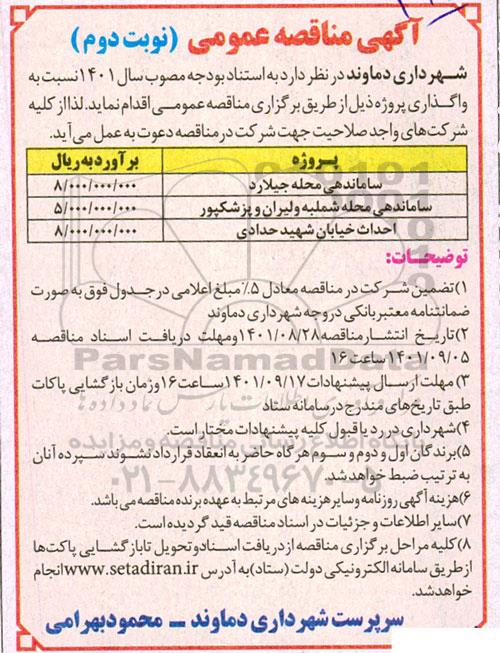 آگهی مناقصه عمومی (نوبت دوم)
شهرداری دماوند در نظر دارد به استناد بودجه مصوب سال ۱۴۰۱ نسبت به
واگذاری پروژه ذیل از طریق برگزاری مناقصه عمومی اقدام نماید. لذا از کلیه
شرکت‌های واجد صلاحیت جهت شرکت در مناقصه دعوت به عمل می‌آید.
پروژه برآورد به ریال
ساماندهی محله جیلارد ۸/۰۰۰/۰۰۰/۰۰۰
ساماندهی محله شملبه ولیران و پزشکپور ۵/۰۰۰/۰۰۰/۰۰۰
احداث خیابان شهید حدادی ۸/۰۰۰/۰۰۰/۰۰۰
توضیحات:
۱) تضمین شرکت در مناقصه معادل ۵٪ مبلغ اعلامی در جدول فوق به صورت
ضمانتنامه معتبر بانکی در وجه شهرداری دماوند
۲) تاریخ انتشار مناقصه ۱۴۰۱/۰۸/۲۸ و مهلت دریافت اسناد مناقصه
۱۴۰۱/۰۹/۰۵ ساعت ۱۶
۳) مهلت ارسال پیشنهادات ۱۴۰۱/۰۹/۱۷ ساعت ۱۶ و زمان بازگشایی پاکات
طبق تاریخ‌های مندرج در سامانه ستاد
۴) شهرداری در رد یا قبول کلیه پیشنهادات مختار است.
۵) برندگان اول و دوم و سوم هرگاه حاضر به انعقاد قرارداد نشوند سپرده آنان
به ترتیب ضبط خواهد شد.
۶) هزینه آگهی روزنامه و سایر هزینه های مرتبط به عهده برنده مناقصه می باشد.
۷) سایر اطلاعات و جزئیات در اسناد مناقصه قید گردیده است.
۸) کلیه مراحل برگزاری مناقصه از دریافت اسناد و تحویل تا بازگشایی پاکت‌ها
از طریق سامانه الکترونیکی دولت (ستاد) به آدرس www.setadiran.ir انجام
خواهد شد.
سرپرست شهرداری دماوند – محمود بهرامی
ParsNamadData
پایگاه اطلاع رسانی مناقصه و مزایده
۰۲۱-۸۸۳۴۹۶۷۰-۵